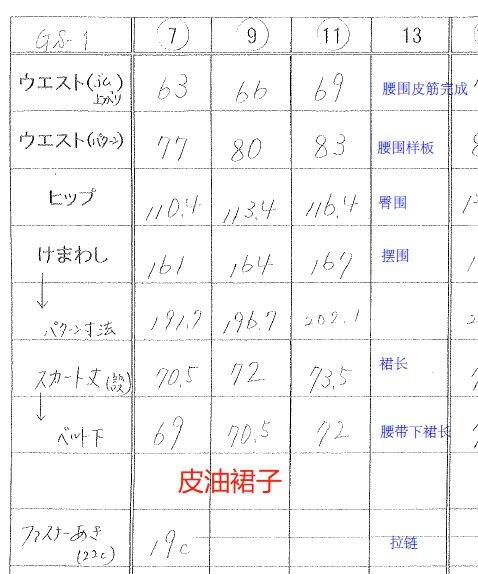 GS-1 7 9 11 13
ウエスト(ゴム上がり) 63 66 69 腰围皮筋完成
ウエスト(パターン) 77 80 83 腰围样板
ヒップ 110.4 113.4 116.4 臀围
けまわし 161 164 167 摆围
↓パターン寸法 191.7 196.7 202.1
スカート丈(設) 70.5 72 73.5 裙长
↓ベルト下 69 70.5 72 腰带下裙长
皮油裙子
ファスナーあき(22c) 19c 拉链